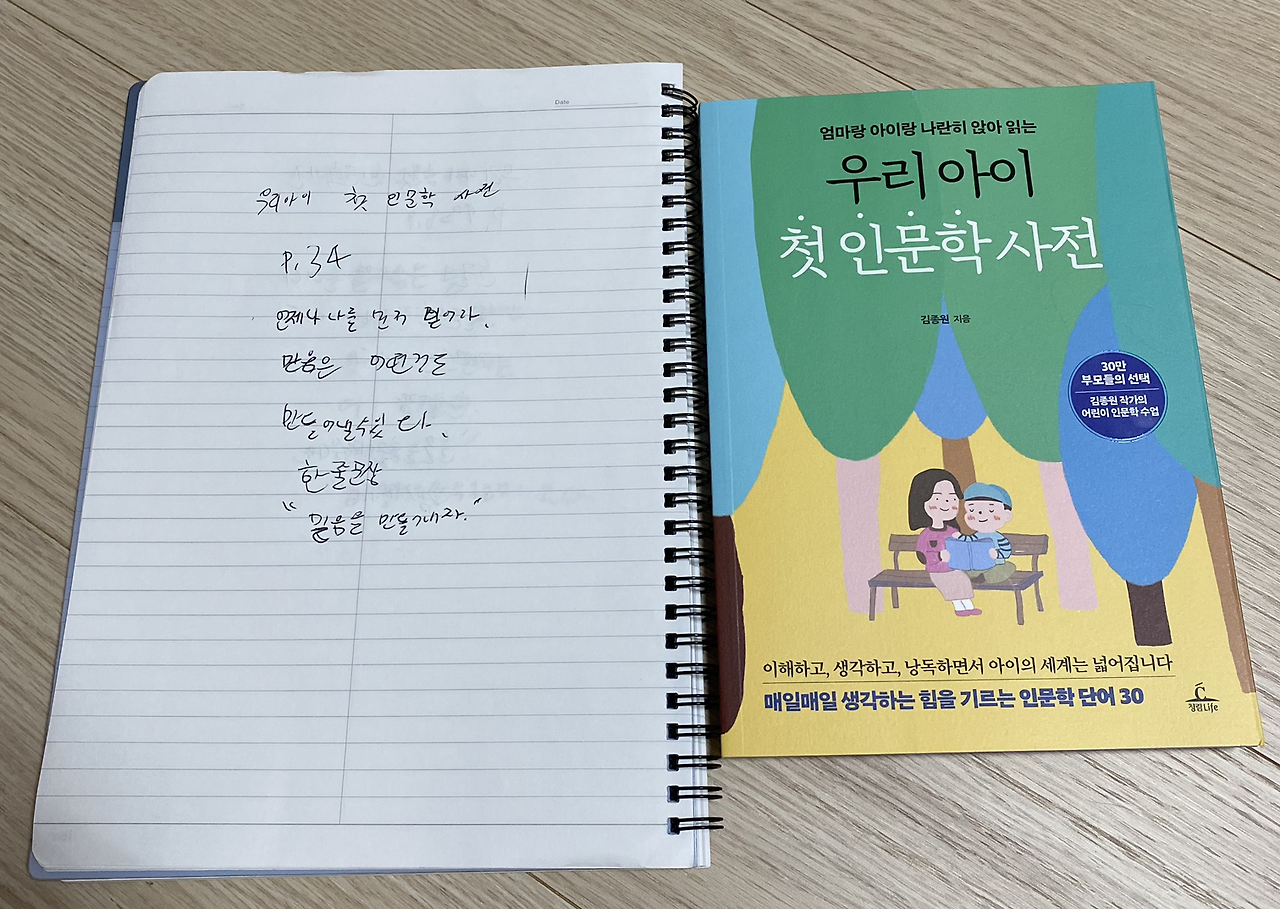 Date
우리아이 첫 인문학 사전
P.34
언제나 나를 먼저 믿어라.
믿음은 어떤것도
만들어낼수있다.
한줄문장
"믿음을 만들게자."
엄마랑 아이랑 나란히 앉아 읽는
우리 아이
첫 인문학 사전
김종원 지음
30만
부모들의 선택
김종원 작가의
어린이 인문학 수업
이해하고, 생각하고, 낭독하면서 아이의 세계는 넓어집니다
매일매일 생각하는 힘을 기르는 인문학 단어 30
청림Life